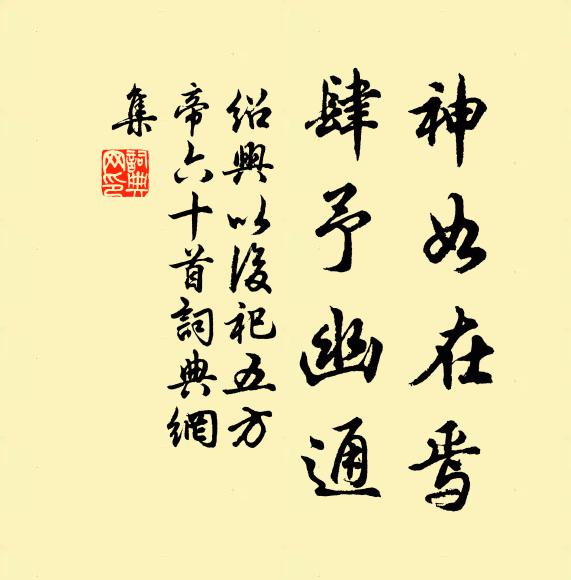 神如在焉
肆予幽通
紹興以後祀五方
帝六十首詞典網
集
詞典
网印